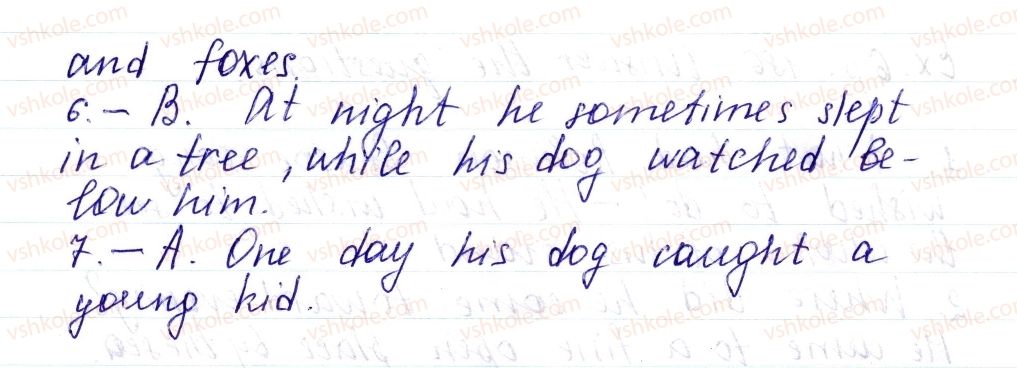 and foxes.
6. – B. At night he sometimes slept
in a tree, while his dog watched be-
low him.
7. – A. One day his dog caught a
young kid.